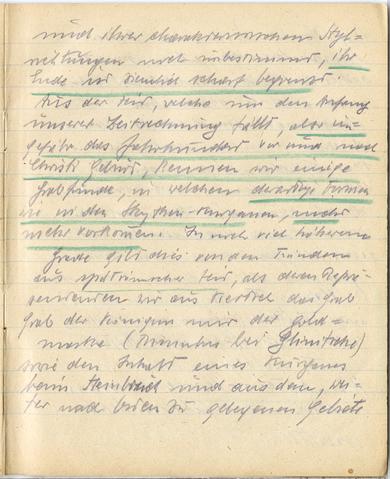 und ihrer charakteristischen Styl-
richtungen noch unbestimmt, ihr
Ende ist ziemlich scharf begrenzt.
Aus der Zeit, welche um den Anfang
unserer Zeitrechnung fällt, also un-
gefähr das Jahrhundert vor und nach
Christi Geburt, kennen wir einige
Grabfunde, in welchen derartige Formen
wie in den Skythen-Kurganen, nicht
mehr vorkommen. In noch viel höherem
Grade gilt dies von den Funden
aus spätrömischer Zeit, als deren Reprä-
sentanten wir aus Kertsch das Grab
Grab der Königin mit der Gold-
maske ( bei Glinitsche)
sowie den Inhalt eines Kurgans
beim Steinbruch und aus dem, wei-
ter nach Süden zu gelegenen Gebiete